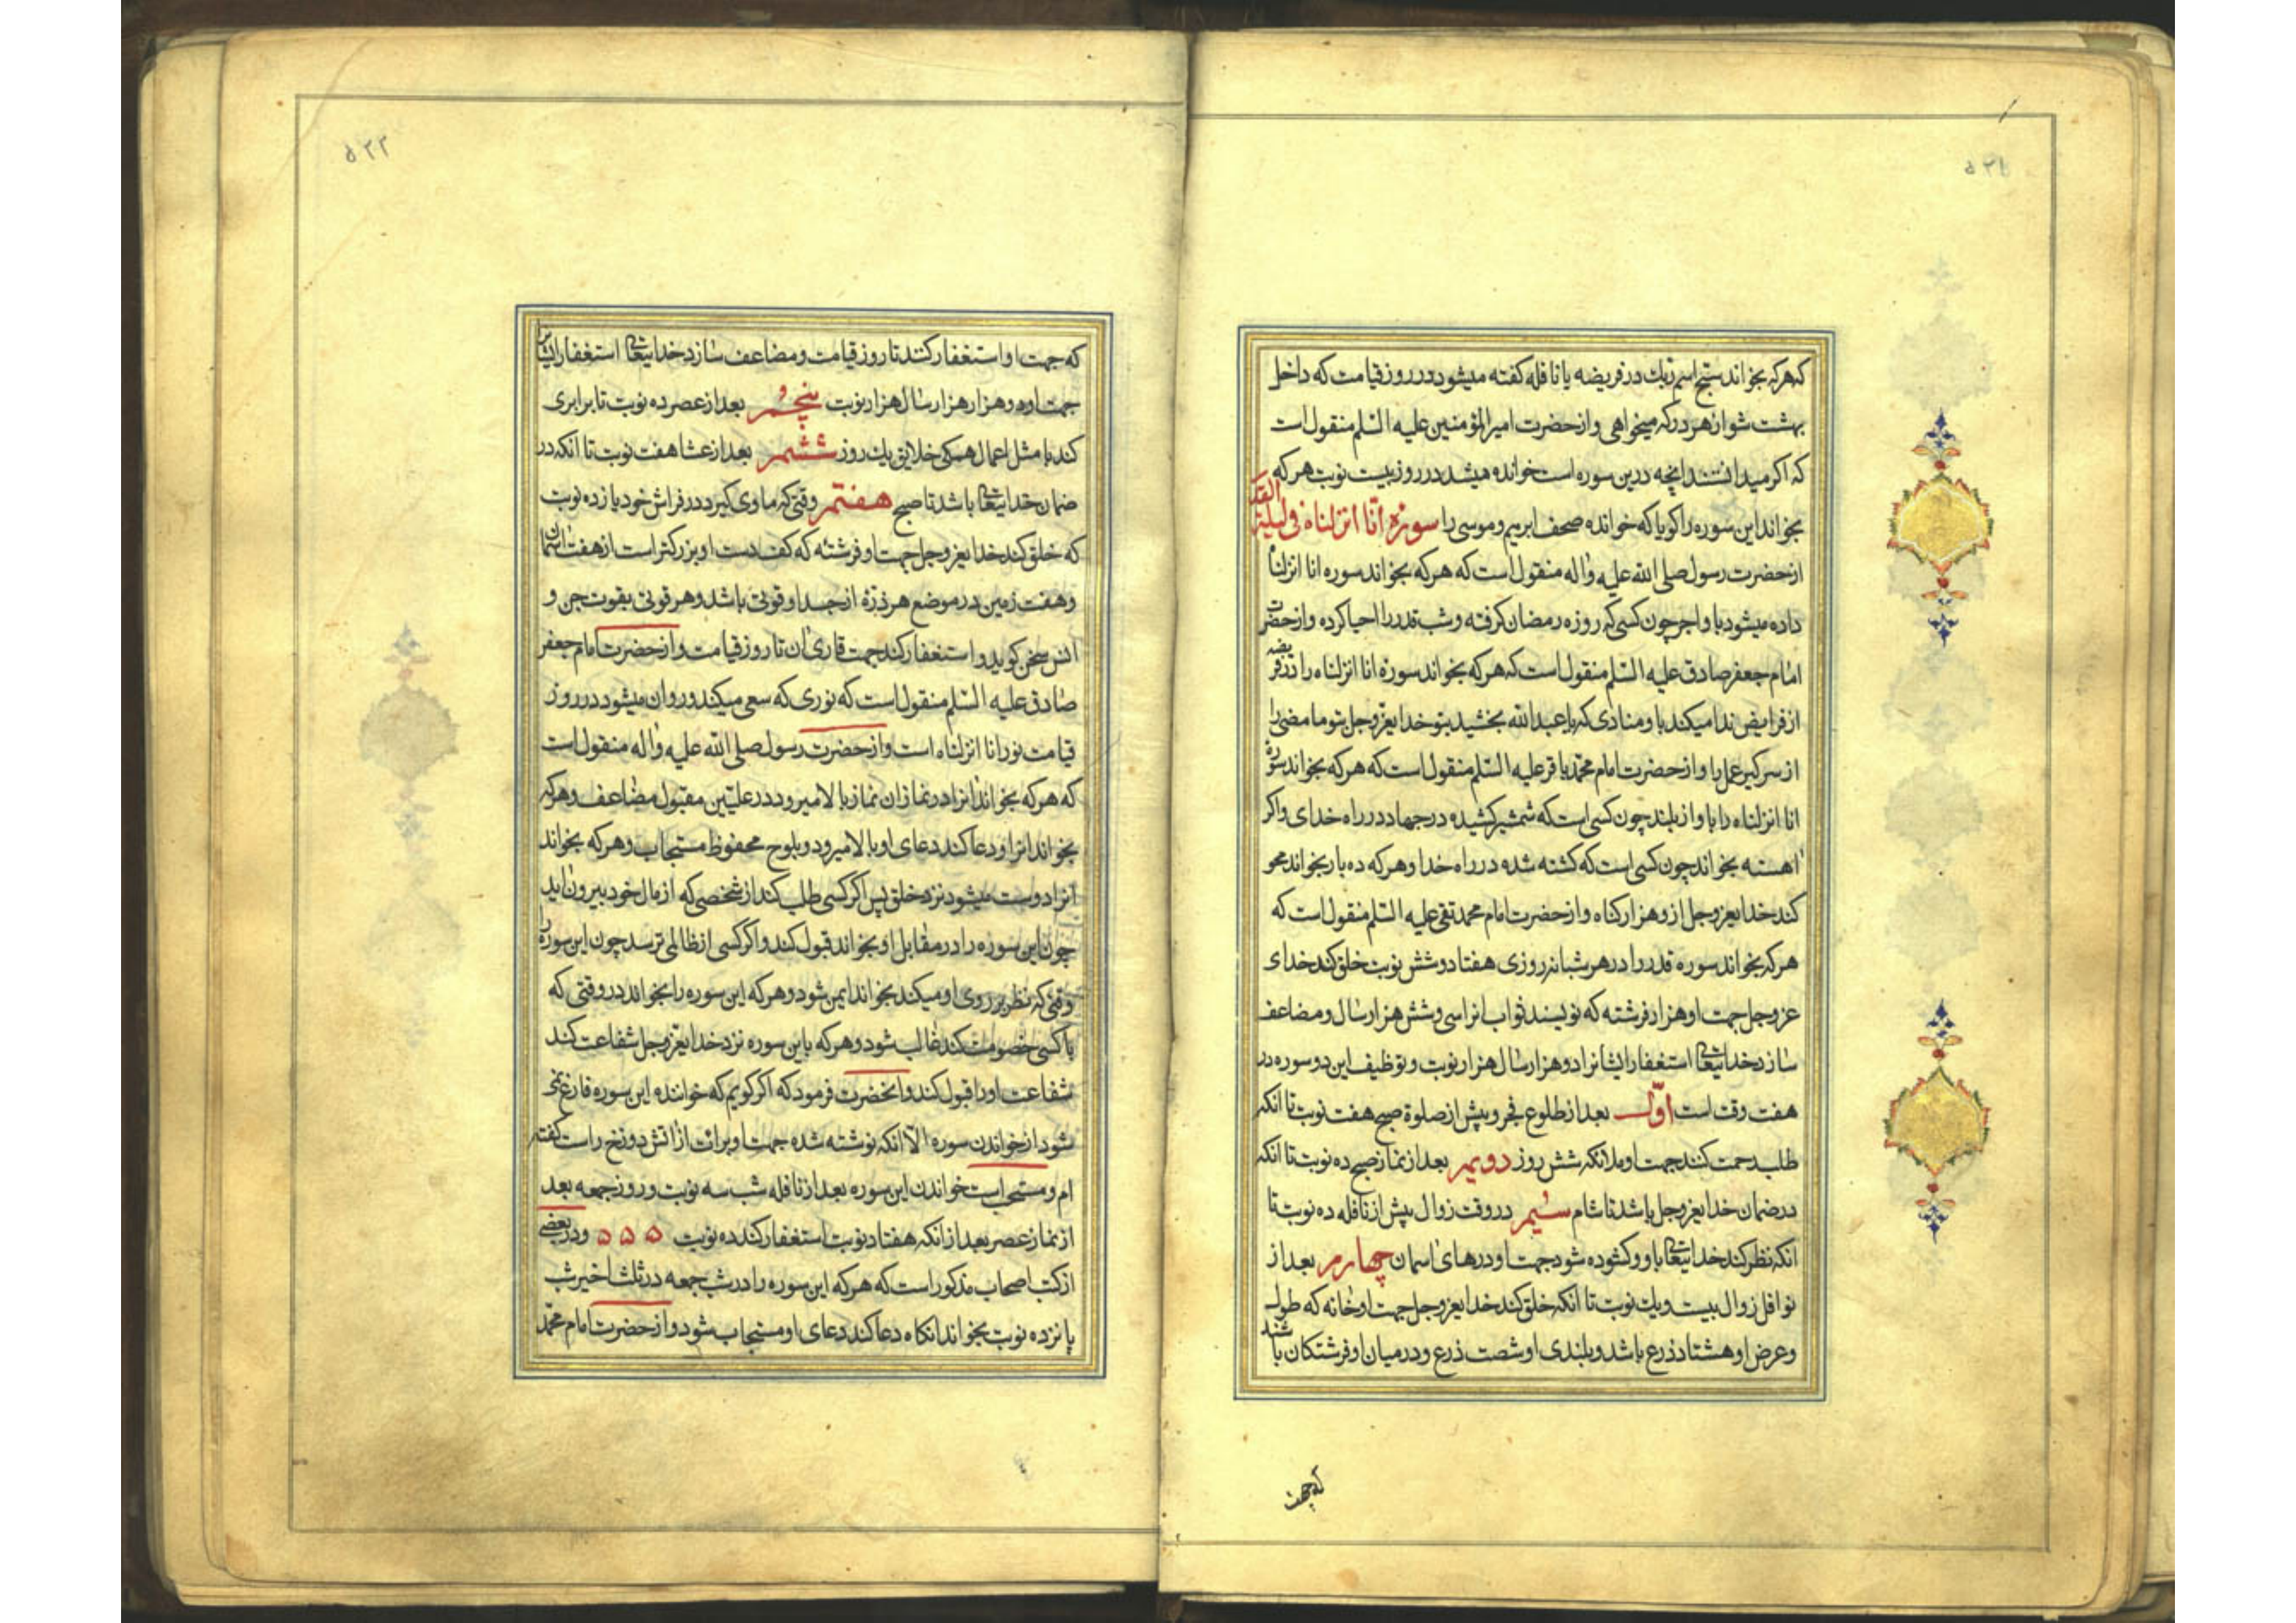 ۵۲۱
که هرکه بخواند سبح اسم ربك در فریضه یا نافله کفته میشود در روز قیامت که داخل
بهشت شو از هر در که میخواهی و از حضرت امیرالمؤمنین علیه السّلم منقول است
که اکر میدانستند انچه درین سوره است خوانده میشد در روز بیست نوبت هرکه
بخواند این سوره را کویا که خوانده صحف ابرهیم و موسی را سورۀ انّا انزلناه فی لیلة القدر
از حضرت رسول صلی الله علیه واله منقول است که هرکه بخواند سوره انا انزلناه
داده میشود باو اجر چون کسی که روزه رمضان کرفته و شب قدر را احیا کرده و از حضرت
امام جعفر صادق علیه السّلم منقول است که هرکه بخواند سورۀ انا انزلناه را در فریضه
از فرایض ندا میکند باو منادی که یا عبدالله بخشید بتو خدایعزوجل بتو ما مضی را
از سر کیر عمل را و از حضرت امام محمّد باقر علیه السّلم منقول است که هرکه بخواند سوره
انا انزلناه را باواز بلند چون کسی است که شمشیر کشیده در جهاد در راه خدای و اکر
اهسته بخواند چون کسی است که کشته شده در راه خدا و هرکه ده بار بخواند محو
کند خدایعزوجل ازو هزار کناه و از حضرت امام محمد تقی علیه السّلم منقول است که
هرکه بخواند سوره قدر را در هر شبانه روزی هفتاد و شش نوبت خلق کند خدای
عزوجل جهت او هزار فرشته که نویسند ثواب انرا سی و شش هزار سال و مضاعف
سازد خدایتعالی استغفار ایشانرا دو هزار سال هزار نوبت و توظیف این دو سوره در
هفت وقت است اوّل بعد از طلوع فجر و پیش از صلوة صبح هفت نوبت تا انکه
طلب رحمت کنند جهت او ملائکه شش روز دویم بعد از نماز صبح ده نوبت تا انکه
در ضمان خدایعزوجل باشد تا شام سیّم در وقت زوال پیش از نافله ده نوبت تا
انکه نظر کند خدایتعالی باو و کشوده شود جهت او درهای اسمان چهارم بعد از
نوافل زوال بیست و یك نوبت تا انکه خلق کند خدایعزوجل جهت او خانه که طول
و عرض او هشتاد ذرع باشد و بلندی او شصت ذرع و در میان او فرشتکان باشند
که جهت
۵۲۲
که جهت او استغفار کنند تا روز قیامت و مضاعف سازد خدایتعالی استغفار ایشانرا
جهت او دو هزار هزار سال هزار نوبت پنجم بعد از عصر ده نوبت تا برابری
کند با مثل اعمال همکی خلایق یك روز ششم بعد از عشا هفت نوبت تا انکه در
ضمان خدایتعالی باشد تا صبح هفتم وقتی که ماوی کیرد در فراش خود یازده نوبت
که خلق کند خدایعزوجل جهت او فرشته که کف دست او بزرکتر است از هفت اسمان
و هفت زمین در موضع هر ذرّه از جسد او قوتی باشد و هر قوتی بقوت جن و
انس سخن کوید و استغفار کند جهت قاری ان تا روز قیامت و از حضرت امام جعفر
صادق علیه السّلم منقول است که نوری که سعی میکند و روان میشود در روز
قیامت نور انا انزلناه است و از حضرت رسول صلی الله علیه واله منقول است
که هرکه بخواند انرا در نماز ان نماز بالا میرود در علیّین مقبول مضاعف و هرکه
بخواند انرا و دعا کند دعای او بالا میرود و بلوح محفوظ مستجاب و هرکه بخواند
انرا دوست میشود نزد خلق پس اکر کسی طلب کند از شخصی که از مال خود بیرون اید
چون این سوره را در مقابل او بخواند قبول کند و اکر کسی از ظالمی ترسد چون این سوره را
وقتی که نظر بر روی او میکند بخواند ایمن شود و هرکه این سوره را بخواند در وقتی که
با کسی خصومت کند غالب شود و هرکه باین سوره نزد خدایعزوجل شفاعت کند
شفاعت او را قبول کند و انحضرت فرمود که اکر کویم که خواننده این سوره فارغ نمی
شود از خواندن سوره الا انکه نوشته شده جهت او برائت از اتش دوزخ راست کفته
ام و مستحب است خواندن این سوره بعد از نافله شب سه نوبت و روز جمعه بعد
از نماز عصر بعد از انکه هفتاد نوبت استغفار کند ده نوبت ۵ ۵ ۵ و در بعضی
از کتب اصحاب مذکور است که هرکه این سوره را در شب جمعه در ثلث اخیر شب
پانزده نوبت بخواند انکاه دعا کند دعای او مستجاب شود و از حضرت امام محمّد